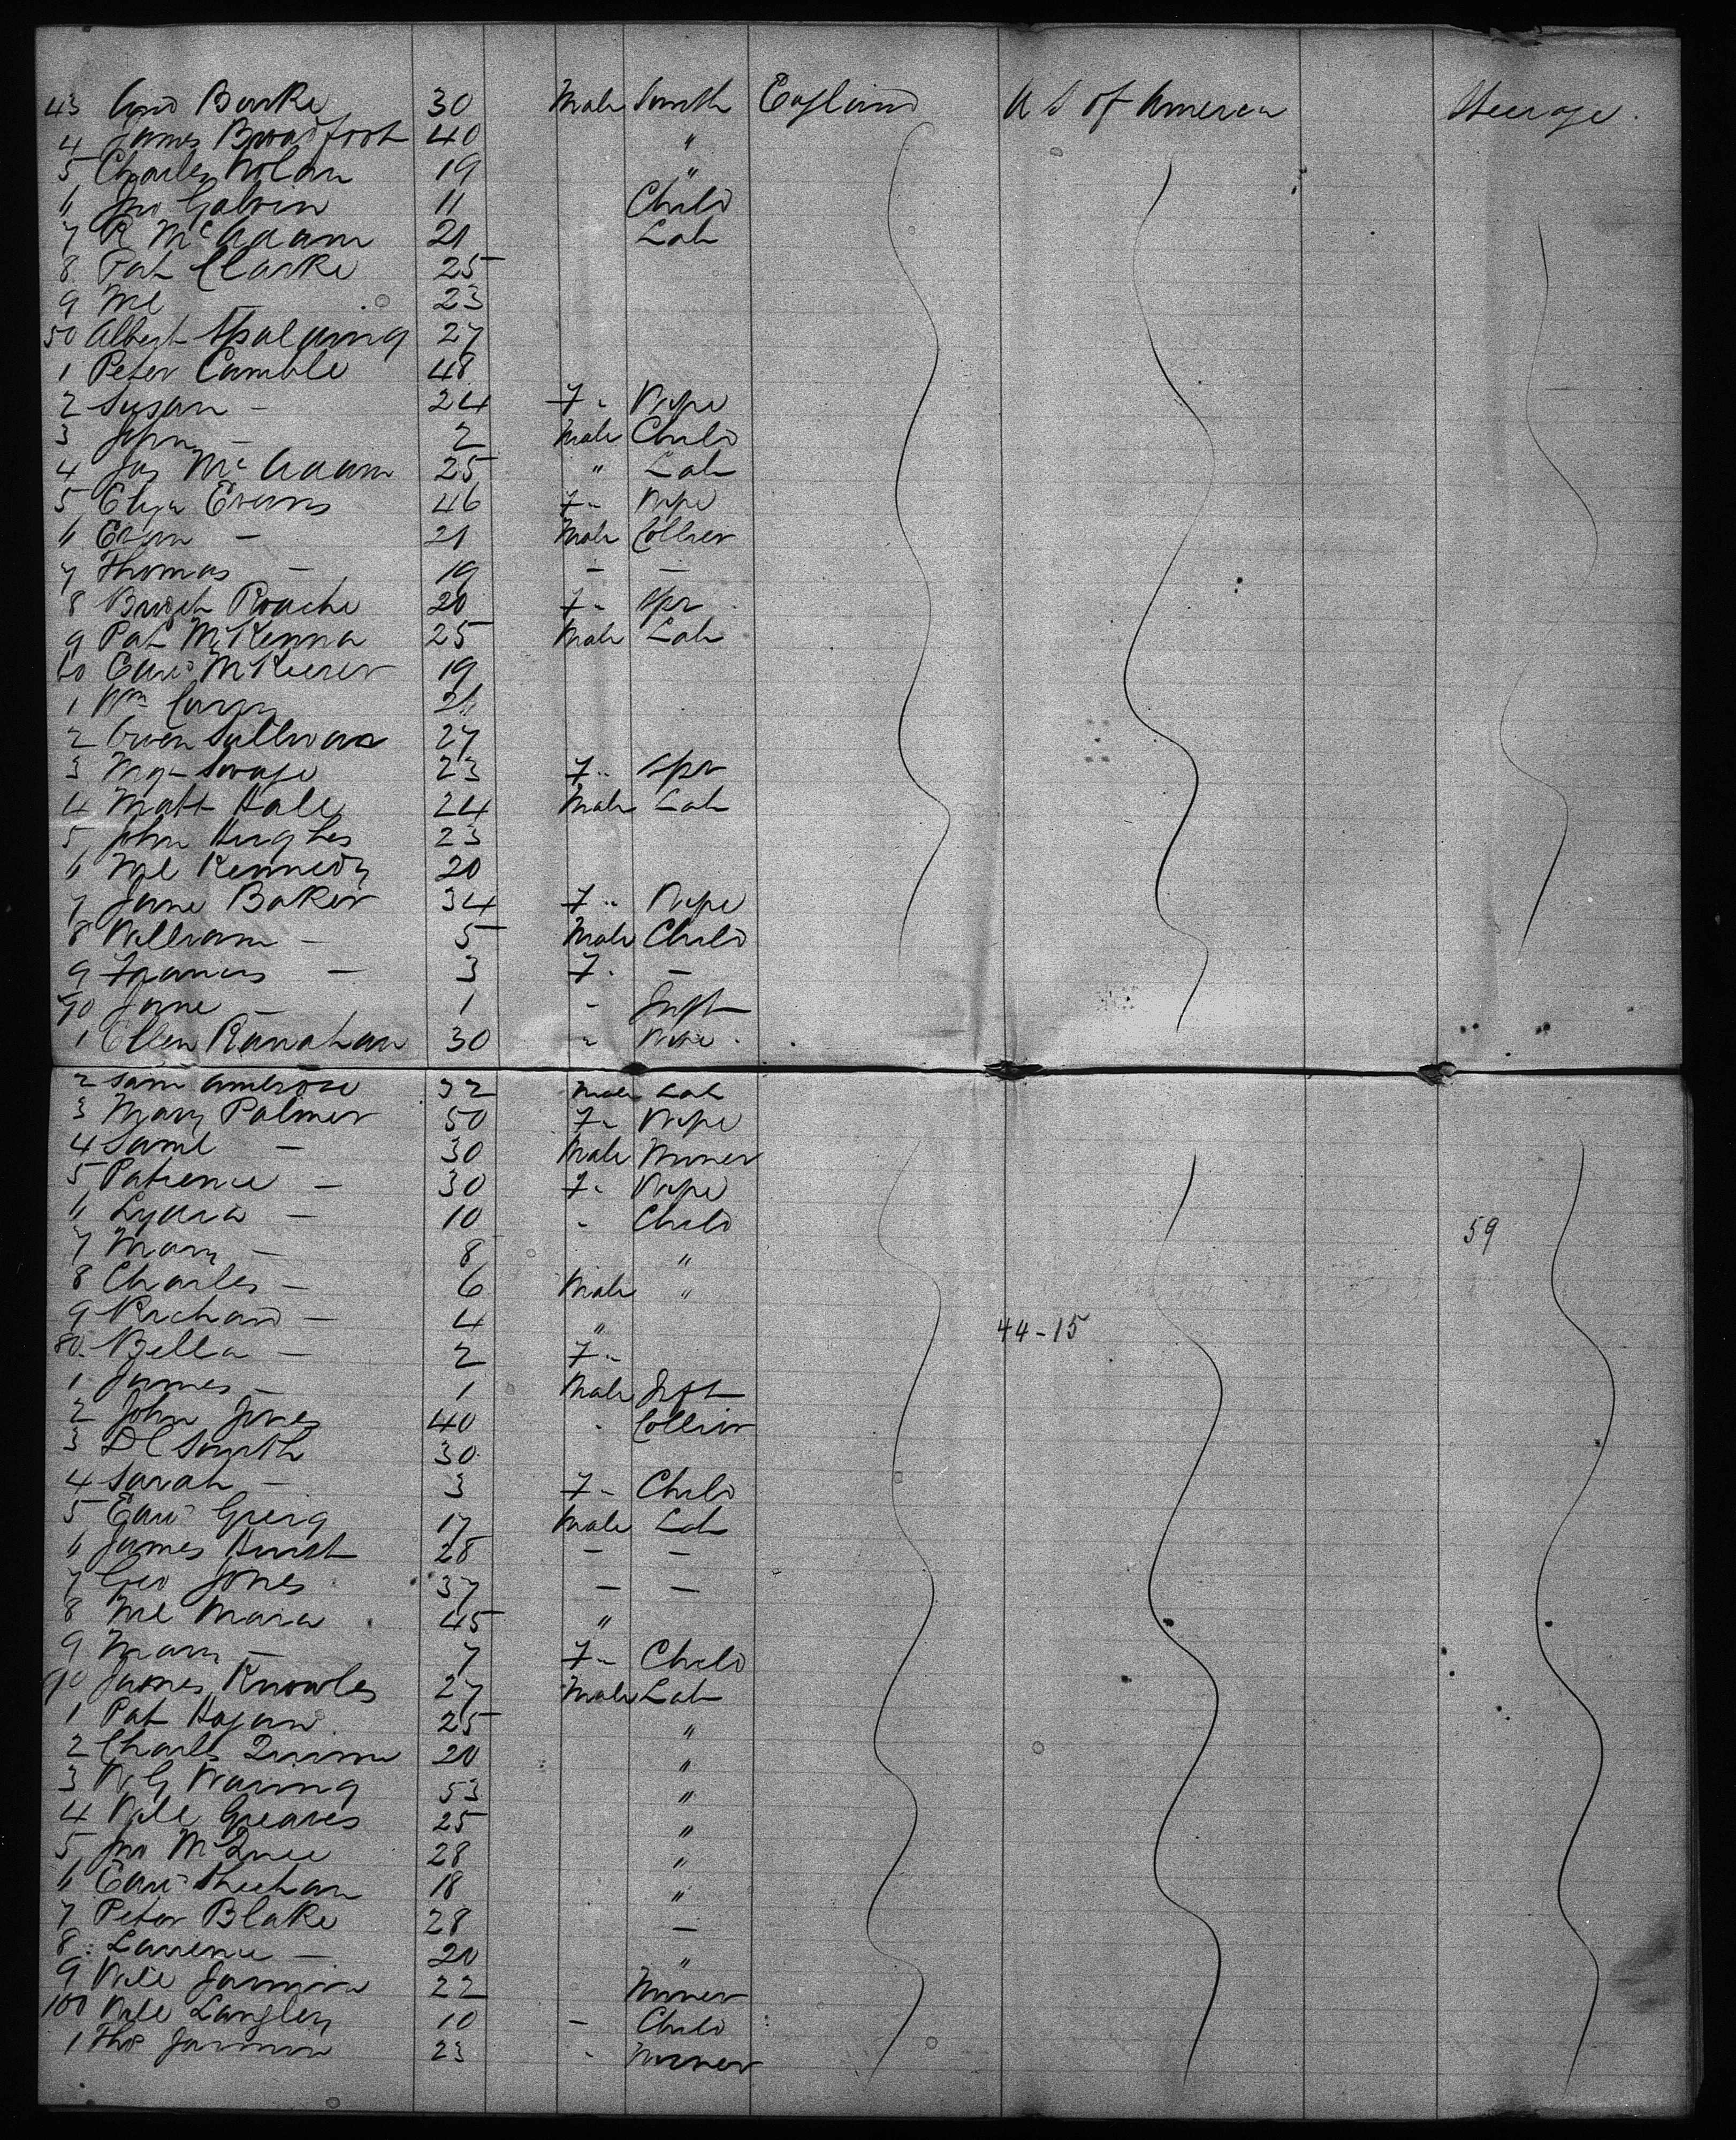 43 Burke 30 Male Smith England U S of America Steerage
4 James Broadfoot 40 "
5 Charles Nolan 19 "
6 Jno Galvin 11 Child
7 R McAdam 21 Lab
8 Pat Clarke 25
9 Ml — 23
50 Albert Spalding 27
1 Peter Camble 48
2 Susan — 24 F " Wife
3 — 2 Male Child
4 Jas McAdam 25 " Lab
5 Eliza Evans 46 F " Wife
6 Evan — 21 Male Collier
7 Thomas — 19 — —
8 Bridgt Roache 20 F " Spr
9 Pat McKenna 25 Male Lab
60 Edwd 19
1 Wm
2 Owen Sullivan 27
3 Mgt Savage 23 F " Spr
4 Matt Hale 24 Male Lab
5 John Hughes 23
6 Ml Kennedy 20
7 Jane Baker 34 F " Wife
8 William — 5 Male Child
9 Francis — 3 F " —
70 Jane — 1 " Inft
1 Ellen Ranahan 30 "
2 Sam Ambrose 32 Male Lab
3 Mary Palmer 50 F " Wife
4 Saml — 30 Male Miner
5 Patience — 30 F " Wife
6 Lydia — 10 " Child
7 Mary — 8 " 59
8 Charles — 6 Male "
9 Richard — 4 "
44-15
80 Bella — 2 F "
1 James — 1 Male Inft
2 John Jones 40 " Collier
3 D C Smith 30
4 Sarah — 3 F " Child
5 Edwd Greig 17 Male Lab
6 James Hurst 28 — —
7 Geo Jones 37 — —
8 Ml Mara 45 "
9 Mary — 7 F " Child
90 James Knowles 27 Male Lab
1 Pat Hogan 25 "
2 Charles Quinn 20 "
3 W G Waring 53 "
4 Will Greaves 25 "
5 Jno 28 "
6 Edwd Sheehan 18 "
7 Peter Blake 28 —
8 Lawrence — 20 "
9 Will Jarman 22 Miner
100 Will Langley 10 — Child
1 Thos Jarman 23 " Miner